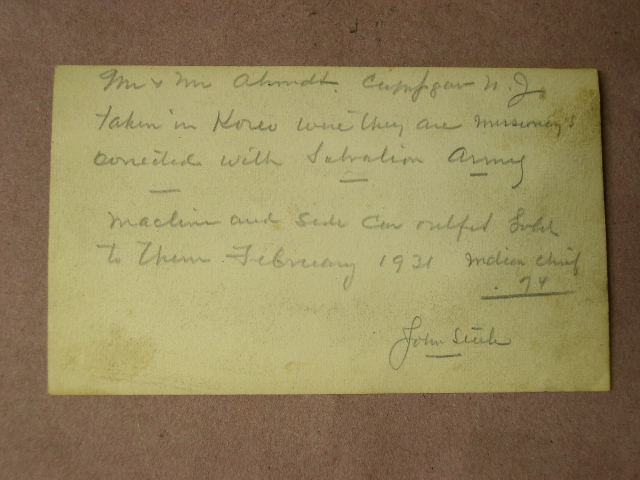 Mr & Mr N.J.
Taken in Koreo were they are Missionary's
conected with Salvation Army
Machine and Side Car outfit Sold
to Them February 1931 Indian Chief
. 74
John